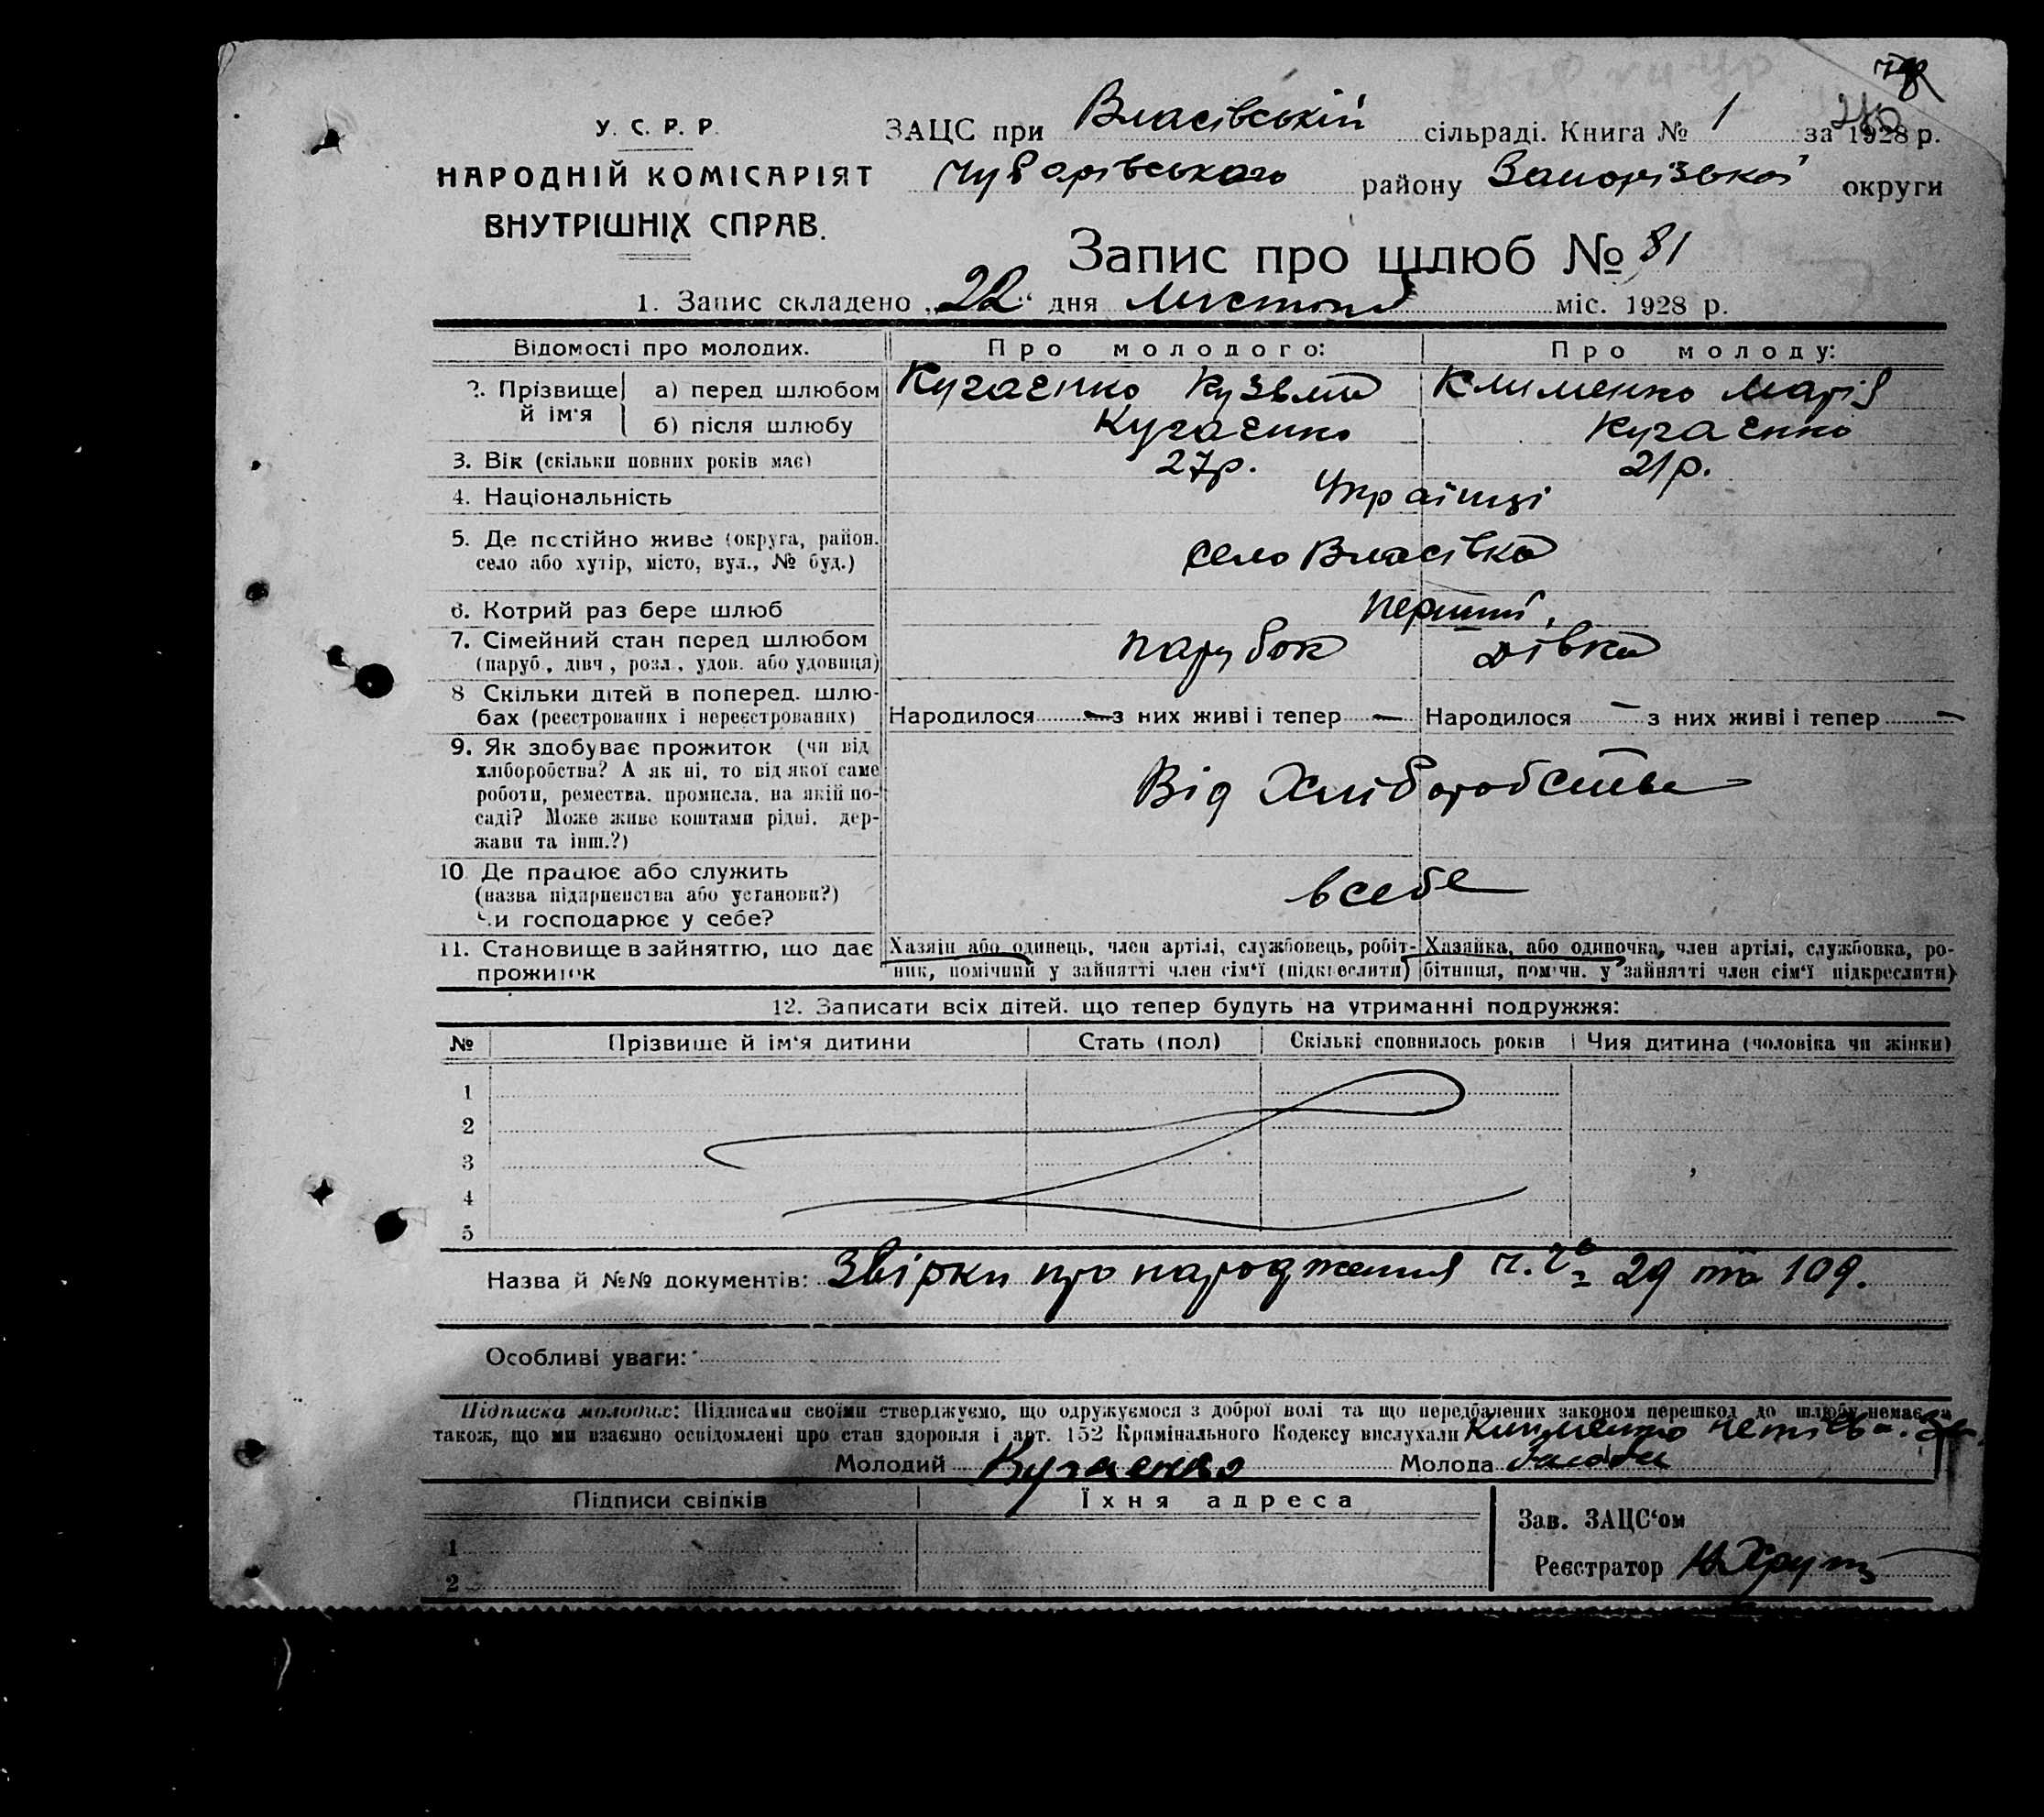 У. С. Р. Р.
НАРОДНІЙ КОМІСАРІЯТ
ВНУТРІШНІХ СПРАВ.
ЗАЦС при Власівській сільраді. Книга № 1 за 1928 р.
Чубарівського району Запорізької округи
Запис про шлюб № 81
1. Запис складено „22“ дня Листопад міс. 1928 р.
Відомості про молодих. Про молодого: Про молоду:
2. Прізвище й ім‘я а) перед шлюбом Кугаєнко Кузьма Клименко Марія
б) після шлюбу Кугаєнко Кугаєнко
3. Вік (скільки повних років має) 27р. 21р.
4. Національність Українці
5. Де постійно живе (округа, район.
село або хутір, місто, вул., № буд.) село Власівка
6. Котрий раз бере шлюб перший
7. Сімейний стан перед шлюбом
(паруб., дівч., розл., удов. або удовиця) парубок дівка
8 Скільки дітей в поперед. шлю-
бах (реєстрованих і нереєстрованих) Народилося — з них живі і тепер — Народилося — з них живі і тепер —
9. Як здобуває прожиток (чи від
хліборобства? А як ні, то від якої саме
роботи, ремества, промисла, на якій по-
саді? Може живе коштами рідні, дер-
жави та інш.?) Від Хліборобства
10 Де працює або служить
(назва підприємства або установи?)
Чи господарює у себе? в себе
11. Становище в зайняттю, що дає
прожиток
Хазяїн або одинець, член артілі, службовець, робіт-
ник, помічний у зайнятті член сім‘ї (підкреслити)
Хазяйка, або одиночка, член артілі, службовка, ро-
бітниця, помічн. у зайнятті член сім‘ї підкреслити)
12. Записати всіх дітей, що тепер будуть на утриманні подружжя:
№ Прізвище й ім‘я дитини Стать (пол) Скількі сповнилось років Чия дитина (чоловіка чи жінки)
1
2
3
4
5
Назва й №№ документів: Звірки про народження 29 та 109.
Особливі уваги:
Підписка молодих: Підписами своїми стверджуємо, що одружуємося з доброї волі та що передбачених законом перешкод до шлюбу немає, а
також, що ми взаємно освідомлені про стан здоровля і арт. 152 Кримінального Кодексу вислухали Клименко
Молодий Кугаенко Молода
Підписи свідків Їхня адреса
1
2
Зав. ЗАЦС‘ом
Реєстратор